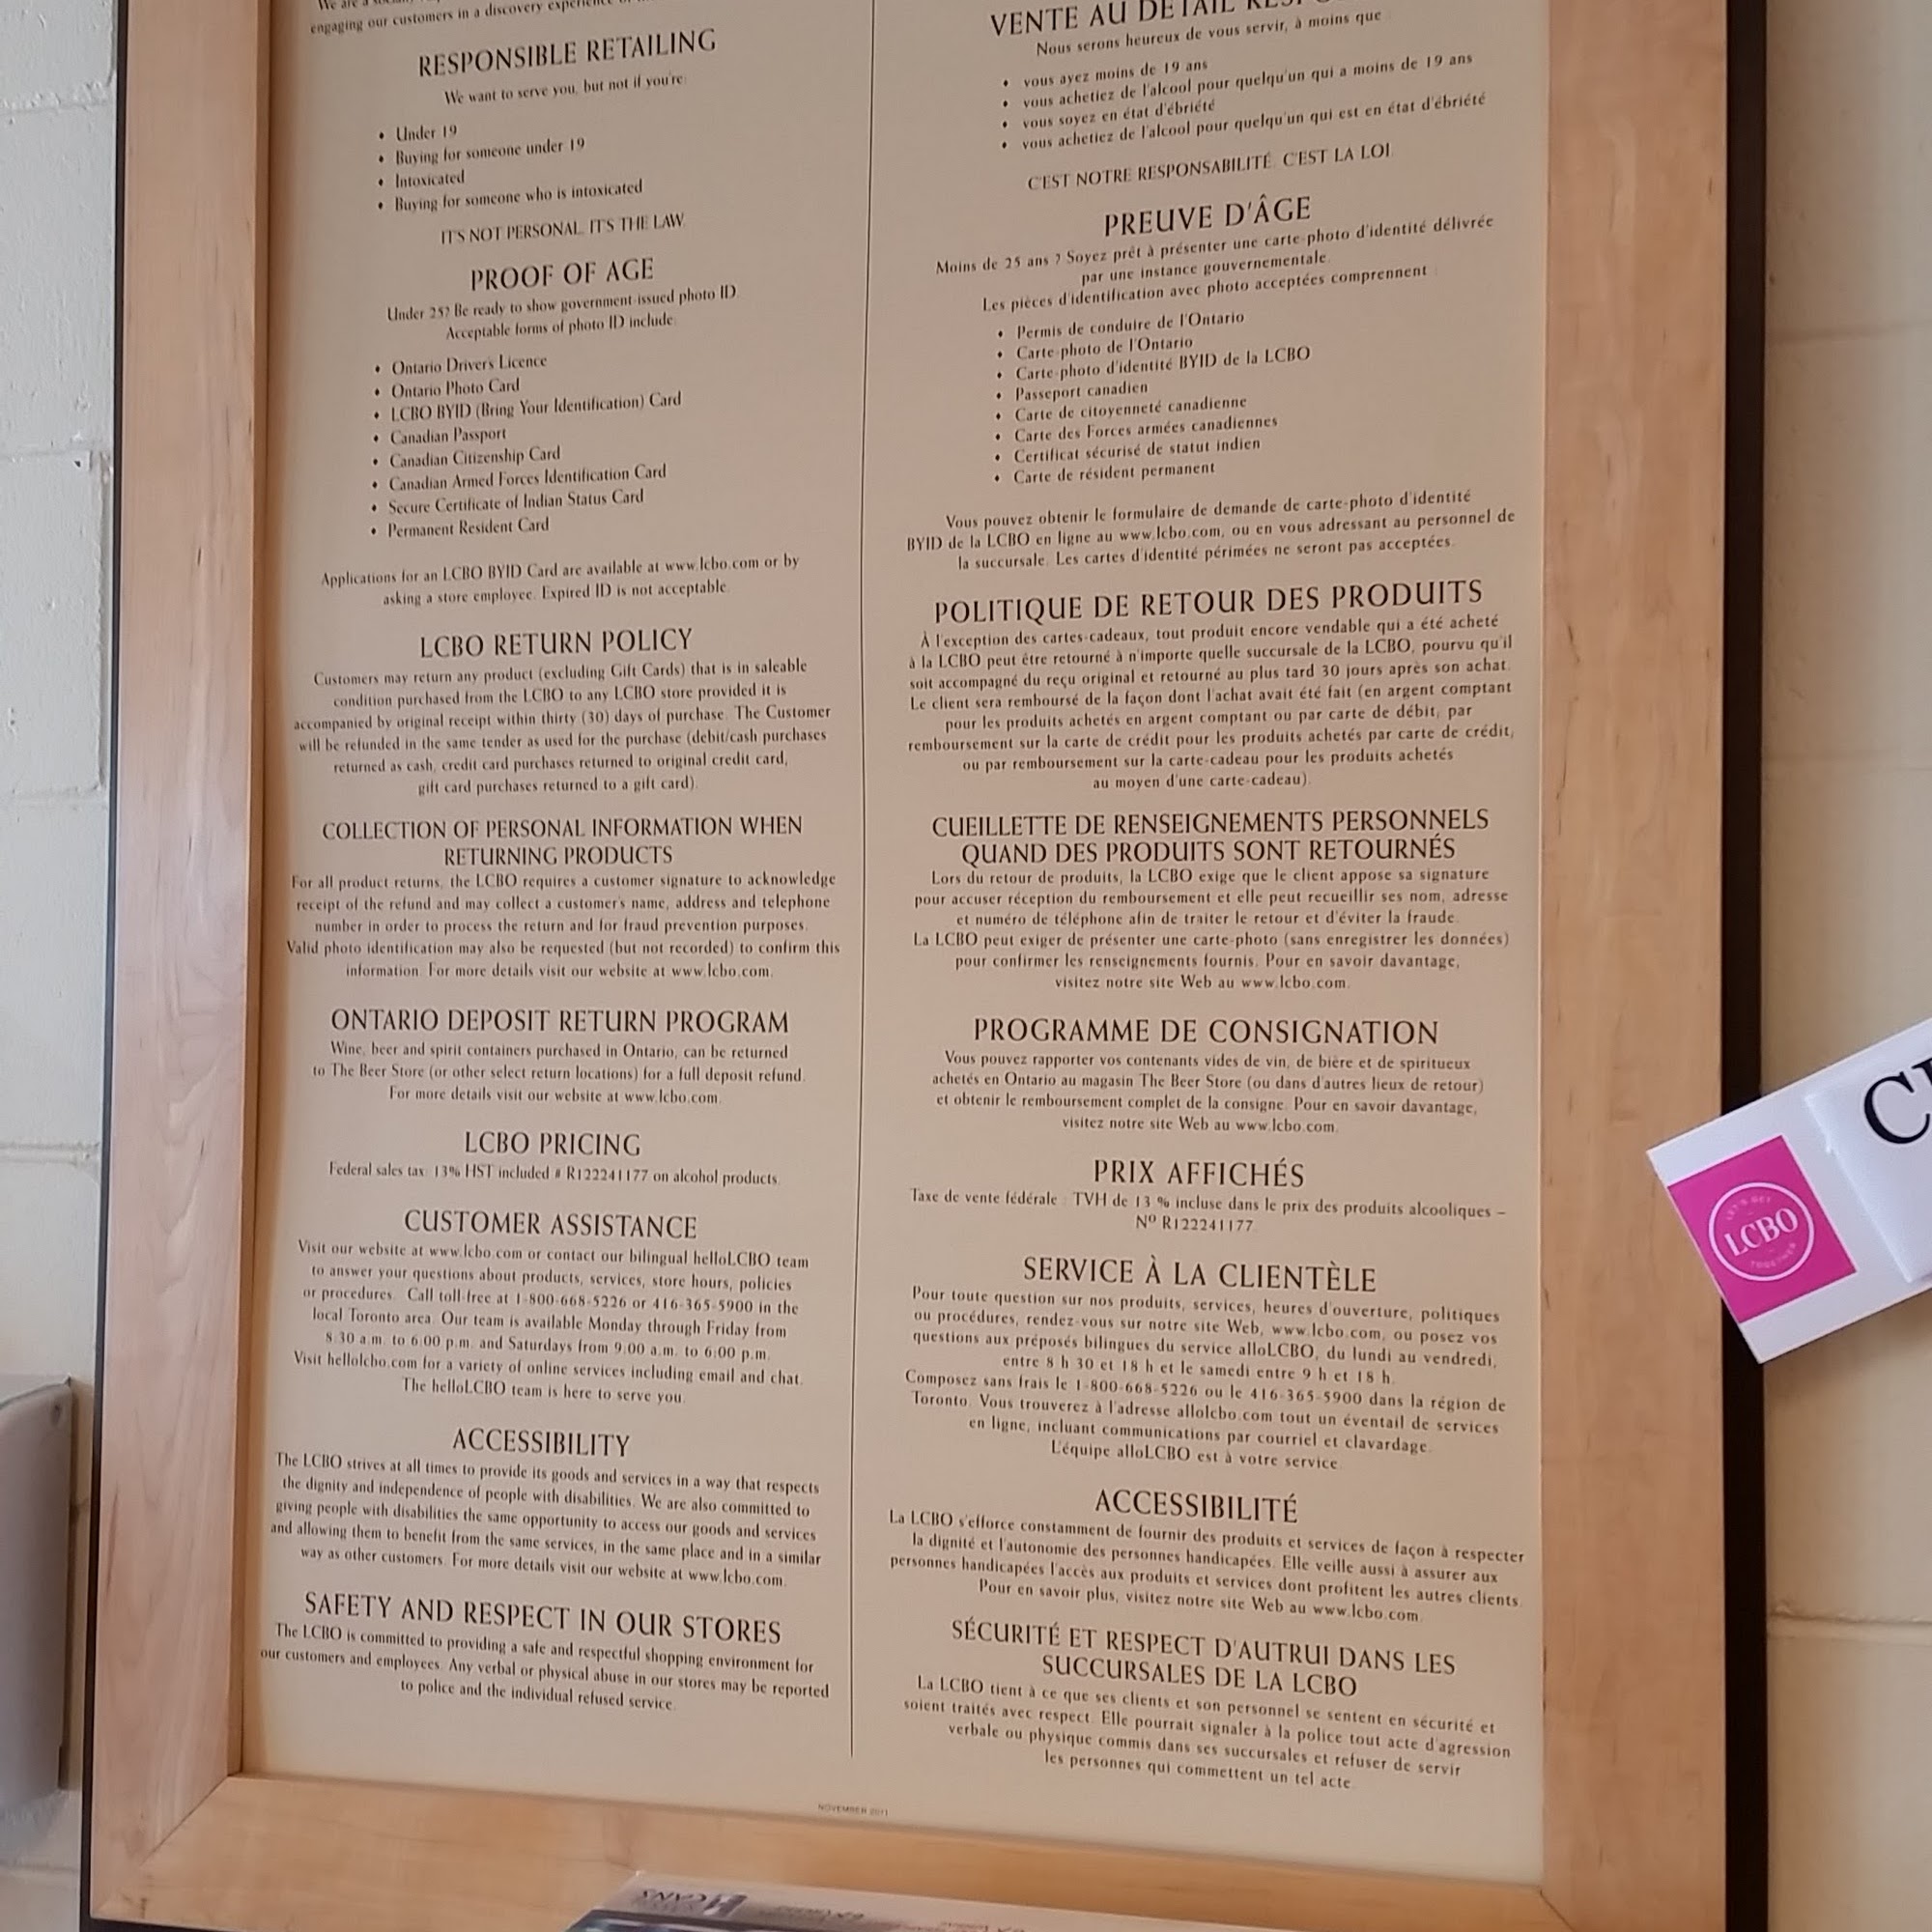 We are a
engaging our customers in a discovery experience of
RESPONSIBLE RETAILING
We want to serve you, but not if you're:
• Under 19
• Buying for someone under 19
• Intoxicated
• Buying for someone who is intoxicated
IT'S NOT PERSONAL. IT'S THE LAW.
PROOF OF AGE
Under 25? Be ready to show government-issued photo ID.
Acceptable forms of photo ID include:
• Ontario Driver's Licence
• Ontario Photo Card
• LCBO BYID (Bring Your Identification) Card
• Canadian Passport
• Canadian Citizenship Card
• Canadian Armed Forces Identification Card
• Secure Certificate of Indian Status Card
• Permanent Resident Card
Applications for an LCBO BYID Card are available at www.lcbo.com or by
asking a store employee. Expired ID is not acceptable.
LCBO RETURN POLICY
Customers may return any product (excluding Gift Cards) that is in saleable
condition purchased from the LCBO to any LCBO store provided it is
accompanied by original receipt within thirty (30) days of purchase. The Customer
will be refunded in the same tender as used for the purchase (debit/cash purchases
returned as cash, credit card purchases returned to original credit card,
gift card purchases returned to a gift card).
COLLECTION OF PERSONAL INFORMATION WHEN
RETURNING PRODUCTS
For all product returns, the LCBO requires a customer signature to acknowledge
receipt of the refund and may collect a customer's name, address and telephone
number in order to process the return and for fraud prevention purposes.
Valid photo identification may also be requested (but not recorded) to confirm this
information. For more details visit our website at www.lcbo.com.
ONTARIO DEPOSIT RETURN PROGRAM
Wine, beer and spirit containers purchased in Ontario, can be returned
to The Beer Store (or other select return locations) for a full deposit refund.
For more details visit our website at www.lcbo.com.
LCBO PRICING
Federal sales tax: 13% HST included # R122241177 on alcohol products.
CUSTOMER ASSISTANCE
Visit our website at www.lcbo.com or contact our bilingual helloLCBO team
to answer your questions about products, services, store hours, policies
or procedures. Call toll-free at 1-800-668-5226 or 416-365-5900 in the
local Toronto area. Our team is available Monday through Friday from
8:30 a.m. to 6:00 p.m. and Saturdays from 9:00 a.m. to 6:00 p.m.
Visit hellolcbo.com for a variety of online services including email and chat.
The helloLCBO team is here to serve you.
ACCESSIBILITY
The LCBO strives at all times to provide its goods and services in a way that respects
the dignity and independence of people with disabilities. We are also committed to
giving people with disabilities the same opportunity to access our goods and services
and allowing them to benefit from the same services, in the same place and in a similar
way as other customers. For more details visit our website at www.lcbo.com.
SAFETY AND RESPECT IN OUR STORES
The LCBO is committed to providing a safe and respectful shopping environment for
our customers and employees. Any verbal or physical abuse in our stores may be reported
to police and the individual refused service.
VENTE AU DÉTAIL
Nous serons heureux de vous servir, à moins que :
• vous ayez moins de 19 ans
• vous achetiez de l'alcool pour quelqu'un qui a moins de 19 ans
• vous soyez en état d'ébriété
• vous achetiez de l'alcool pour quelqu'un qui est en état d'ébriété
C'EST NOTRE RESPONSABILITÉ. C'EST LA LOI.
PREUVE D'ÂGE
Moins de 25 ans ? Soyez prêt à présenter une carte-photo d'identité délivrée
par une instance gouvernementale.
Les pièces d'identification avec photo acceptées comprennent :
• Permis de conduire de l'Ontario
• Carte-photo de l'Ontario
• Carte-photo d'identité BYID de la LCBO
• Passeport canadien
• Carte de citoyenneté canadienne
• Carte des Forces armées canadiennes
• Certificat sécurisé de statut indien
• Carte de résident permanent
Vous pouvez obtenir le formulaire de demande de carte-photo d'identité
BYID de la LCBO en ligne au www.lcbo.com, ou en vous adressant au personnel de
la succursale. Les cartes d'identité périmées ne seront pas acceptées.
POLITIQUE DE RETOUR DES PRODUITS
À l'exception des cartes-cadeaux, tout produit encore vendable qui a été acheté
à la LCBO peut être retourné à n'importe quelle succursale de la LCBO, pourvu qu'il
soit accompagné du reçu original et retourné au plus tard 30 jours après son achat.
Le client sera remboursé de la façon dont l'achat avait été fait (en argent comptant
pour les produits achetés en argent comptant ou par carte de débit, par
remboursement sur la carte de crédit pour les produits achetés par carte de crédit,
ou par remboursement sur la carte-cadeau pour les produits achetés
au moyen d'une carte-cadeau).
CUEILLETTE DE RENSEIGNEMENTS PERSONNELS
QUAND DES PRODUITS SONT RETOURNÉS
Lors du retour de produits, la LCBO exige que le client appose sa signature
pour accuser réception du remboursement et elle peut recueillir ses nom, adresse
et numéro de téléphone afin de traiter le retour et d'éviter la fraude.
La LCBO peut exiger de présenter une carte-photo (sans enregistrer les données)
pour confirmer les renseignements fournis. Pour en savoir davantage,
visitez notre site Web au www.lcbo.com.
PROGRAMME DE CONSIGNATION
Vous pouvez rapporter vos contenants vides de vin, de bière et de spiritueux
achetés en Ontario au magasin The Beer Store (ou dans d'autres lieux de retour)
et obtenir le remboursement complet de la consigne. Pour en savoir davantage,
visitez notre site Web au www.lcbo.com.
PRIX AFFICHÉS
Taxe de vente fédérale : TVH de 13 % incluse dans le prix des produits alcooliques –
Nº R122241177.
SERVICE À LA CLIENTÈLE
Pour toute question sur nos produits, services, heures d'ouverture, politiques
ou procédures, rendez-vous sur notre site Web, www.lcbo.com, ou posez vos
questions aux préposés bilingues du service alloLCBO, du lundi au vendredi,
entre 8 h 30 et 18 h et le samedi entre 9 h et 18 h.
Composez sans frais le 1-800-668-5226 ou le 416-365-5900 dans la région de
Toronto. Vous trouverez à l'adresse allolcbo.com tout un éventail de services
en ligne, incluant communications par courriel et clavardage.
L'équipe alloLCBO est à votre service.
ACCESSIBILITÉ
La LCBO s'efforce constamment de fournir des produits et services de façon à respecter
la dignité et l'autonomie des personnes handicapées. Elle veille aussi à assurer aux
personnes handicapées l'accès aux produits et services dont profitent les autres clients.
Pour en savoir plus, visitez notre site Web au www.lcbo.com.
SÉCURITÉ ET RESPECT D'AUTRUI DANS LES
SUCCURSALES DE LA LCBO
La LCBO tient à ce que ses clients et son personnel se sentent en sécurité et
soient traités avec respect. Elle pourrait signaler à la police tout acte d'agression
verbale ou physique commis dans ses succursales et refuser de servir
les personnes qui commettent un tel acte.
NOVEMBER 2011
LET'S GET
LCBO
TOGETHER
CANS